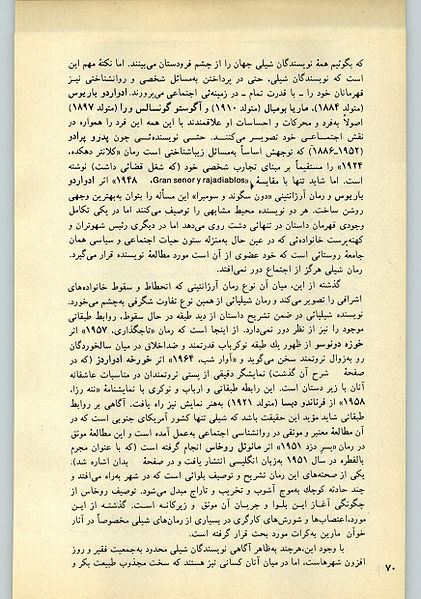 که بگوئیم همهٔ نویسندگان شیلی جهان را از چشم فرودستان می‌بینند. اما نکتهٔ مهم این
است که نویسندگان شیلی، حتی در پرداختن به‌مسائل شخصی و روانشناختی نیز
قهرمانان خود را ـ با قدرت تمام ـ در زمینه‌ئی اجتماعی می‌پرورند. ادواردو باریوس
(متولد ۱۸۸۴)، ماریا بومبال (متولد ۱۹۱۰) و آگوستو گونسالس ورا (متولد ۱۸۹۷)
اصولاً به‌فرد و محرکات و احساسات او علاقمندند با این همه این فرد را همواره در
نقش اجتماعی خود تصویر می‌کنند. حتی نویسنده‌ئی چون پدرو پرادو
(۱۹۵۲ـ۱۸۸۶) که توجهش اساساً به‌مسائل زیباشناختی است رمان «کلانتر دهکده،
۱۹۲۴» را مستقیماً بر مبنای تجارب شخصی خود (که شغل قضائی داشت) نوشته
است. اما شاید تنها با مقایسهٔ «Gran senor y rajadiablos، ۱۹۴۸» اثر ادواردو
باریوس و رمان آرژانتینی «دون سگوند و سومبرا» این مسأله را بتوان به‌بهترین وجهی
روشن ساخت. هر دو نویسنده محیط مشابهی را توصیف می‌کنند اما در یکی تکامل
وجودی قهرمان داستان در تنهائی دشت روی می‌دهد اما در دیگری رئیس شهوتران و
کهنه‌پرست خانواده‌ئی که در عین حال به‌منزله ستون حیات اجتماعی و سیاسی همان
جامعهٔ روستائی است که خود عضوی از آن است مورد مطالعهٔ نویسنده قرار می‌گیرد.
رمان شیلی هرگز از اجتماع دور نمی‌افتد.
گذشته از این، میان آن نوع رمان آرژانتینی که انحطاط و سقوط خانواده‌های
اشرافی را تصویر می‌کند و رمان شیلیائی از همین نوع تفاوت شگرفی به‌چشم می‌خورد.
نویسنده شیلیائی در ضمن تشریح داستان از دید طبقه در حال سقوط، روابط طبقاتی
موجود را نیز از نظر دور نمی‌دارد. از اینجا است که رمان «تاجگذاری، ۱۹۵۷» اثر
خوزه دونوسو از ظهور یك طبقه نوکرباب قدرتمند و ضداخلاق در میان سالخوردگان
رو به‌زوال ثروتمند سخن می‌گوید و «آوار شب، ۱۹۶۴» اثر خورخه ادواردز (که در
صفحهٔ شرح آن گذشت) نمایشگر دقیقی از پستی ثروتمندان در مناسبات عاشقانه
آنان با زیر دستان است. این رابطه طبقاتی و ارباب و نوکری با نمایشنامهٔ «ننه رزا،
۱۹۵۸» از فرناندو دبسا (متولد ۱۹۲۱) به‌هنر نمایش نیز راه یافت. آگاهی بر روابط
طبقاتی شاید مؤید این حقیقت باشد که شیلی تنها کشور آمریکای جنوبی است که در
آن مطالعهٔ معتبر و موثقی در روانشناسی اجتماعی به‌عمل آمده است و این مطالعهٔ موثق
در رمان «پسر دزد ۱۹۵۱» اثر مانوئل روخاس انجام گرفته است (که با عنوان مجرم
بالفطره در سال ۱۹۵۱ به‌زبان انگلیسی انتشار یافت و در صفحهٔ بدان اشاره شد).
یکی از صحنه‌های این رمان تشریح و توصیف بلوائی است که در شهر به‌راه می‌افتد و
چند حادثه کوچك به‌موج آشوب و تخریب و تاراج مبدل می‌شود. توصیف روخاس از
چگونگی آغاز این بلوا و جریان آن موثق و زیرکانه است. گذشته از این
مورد، اعتصاب‌ها و شورش‌های کارگری در بسیاری از رمان‌های شیلی مخصوصاً در آثار
خوآن مارین به‌کرات مورد بحث قرار گرفته است.
با وجود این، هرچند به‌ظاهر آگاهی نویسندگان شیلی محدود به‌جمعیت فقیر و روز
افزون شهرهاست، اما در میان آنان کسانی نیز هستند که سخت مجذوب طبیعت بکر و
۷۰